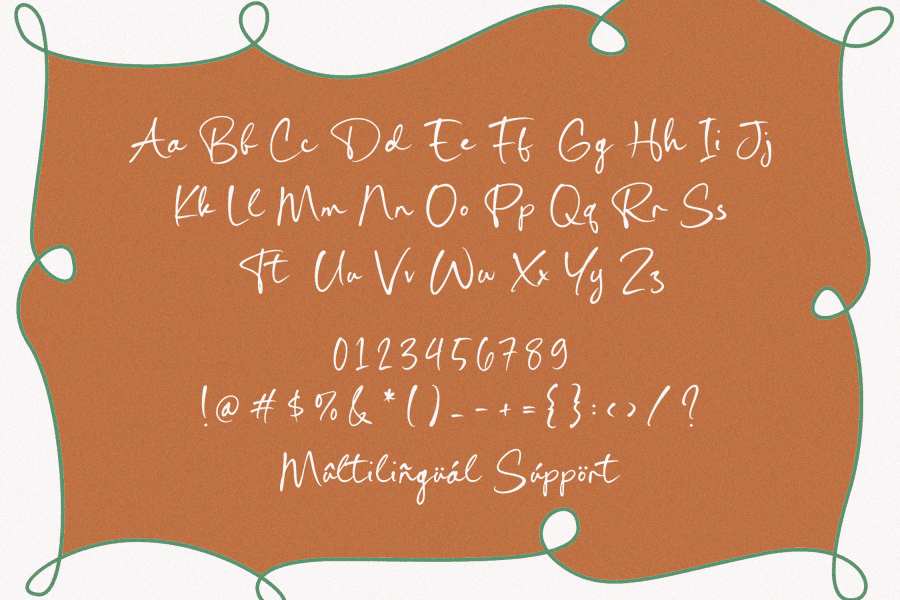 Aa Bb Cc Dd Ee Ff Gg Hh Ii Jj
Kk Ll Mm Nn Oo Pp Qq Rr Ss
Tt Uu Vv Ww Xx Yy Zz
0123456789
!@#$%&*()_-+={}:<>/?
Mûltiliñgüál Súppört